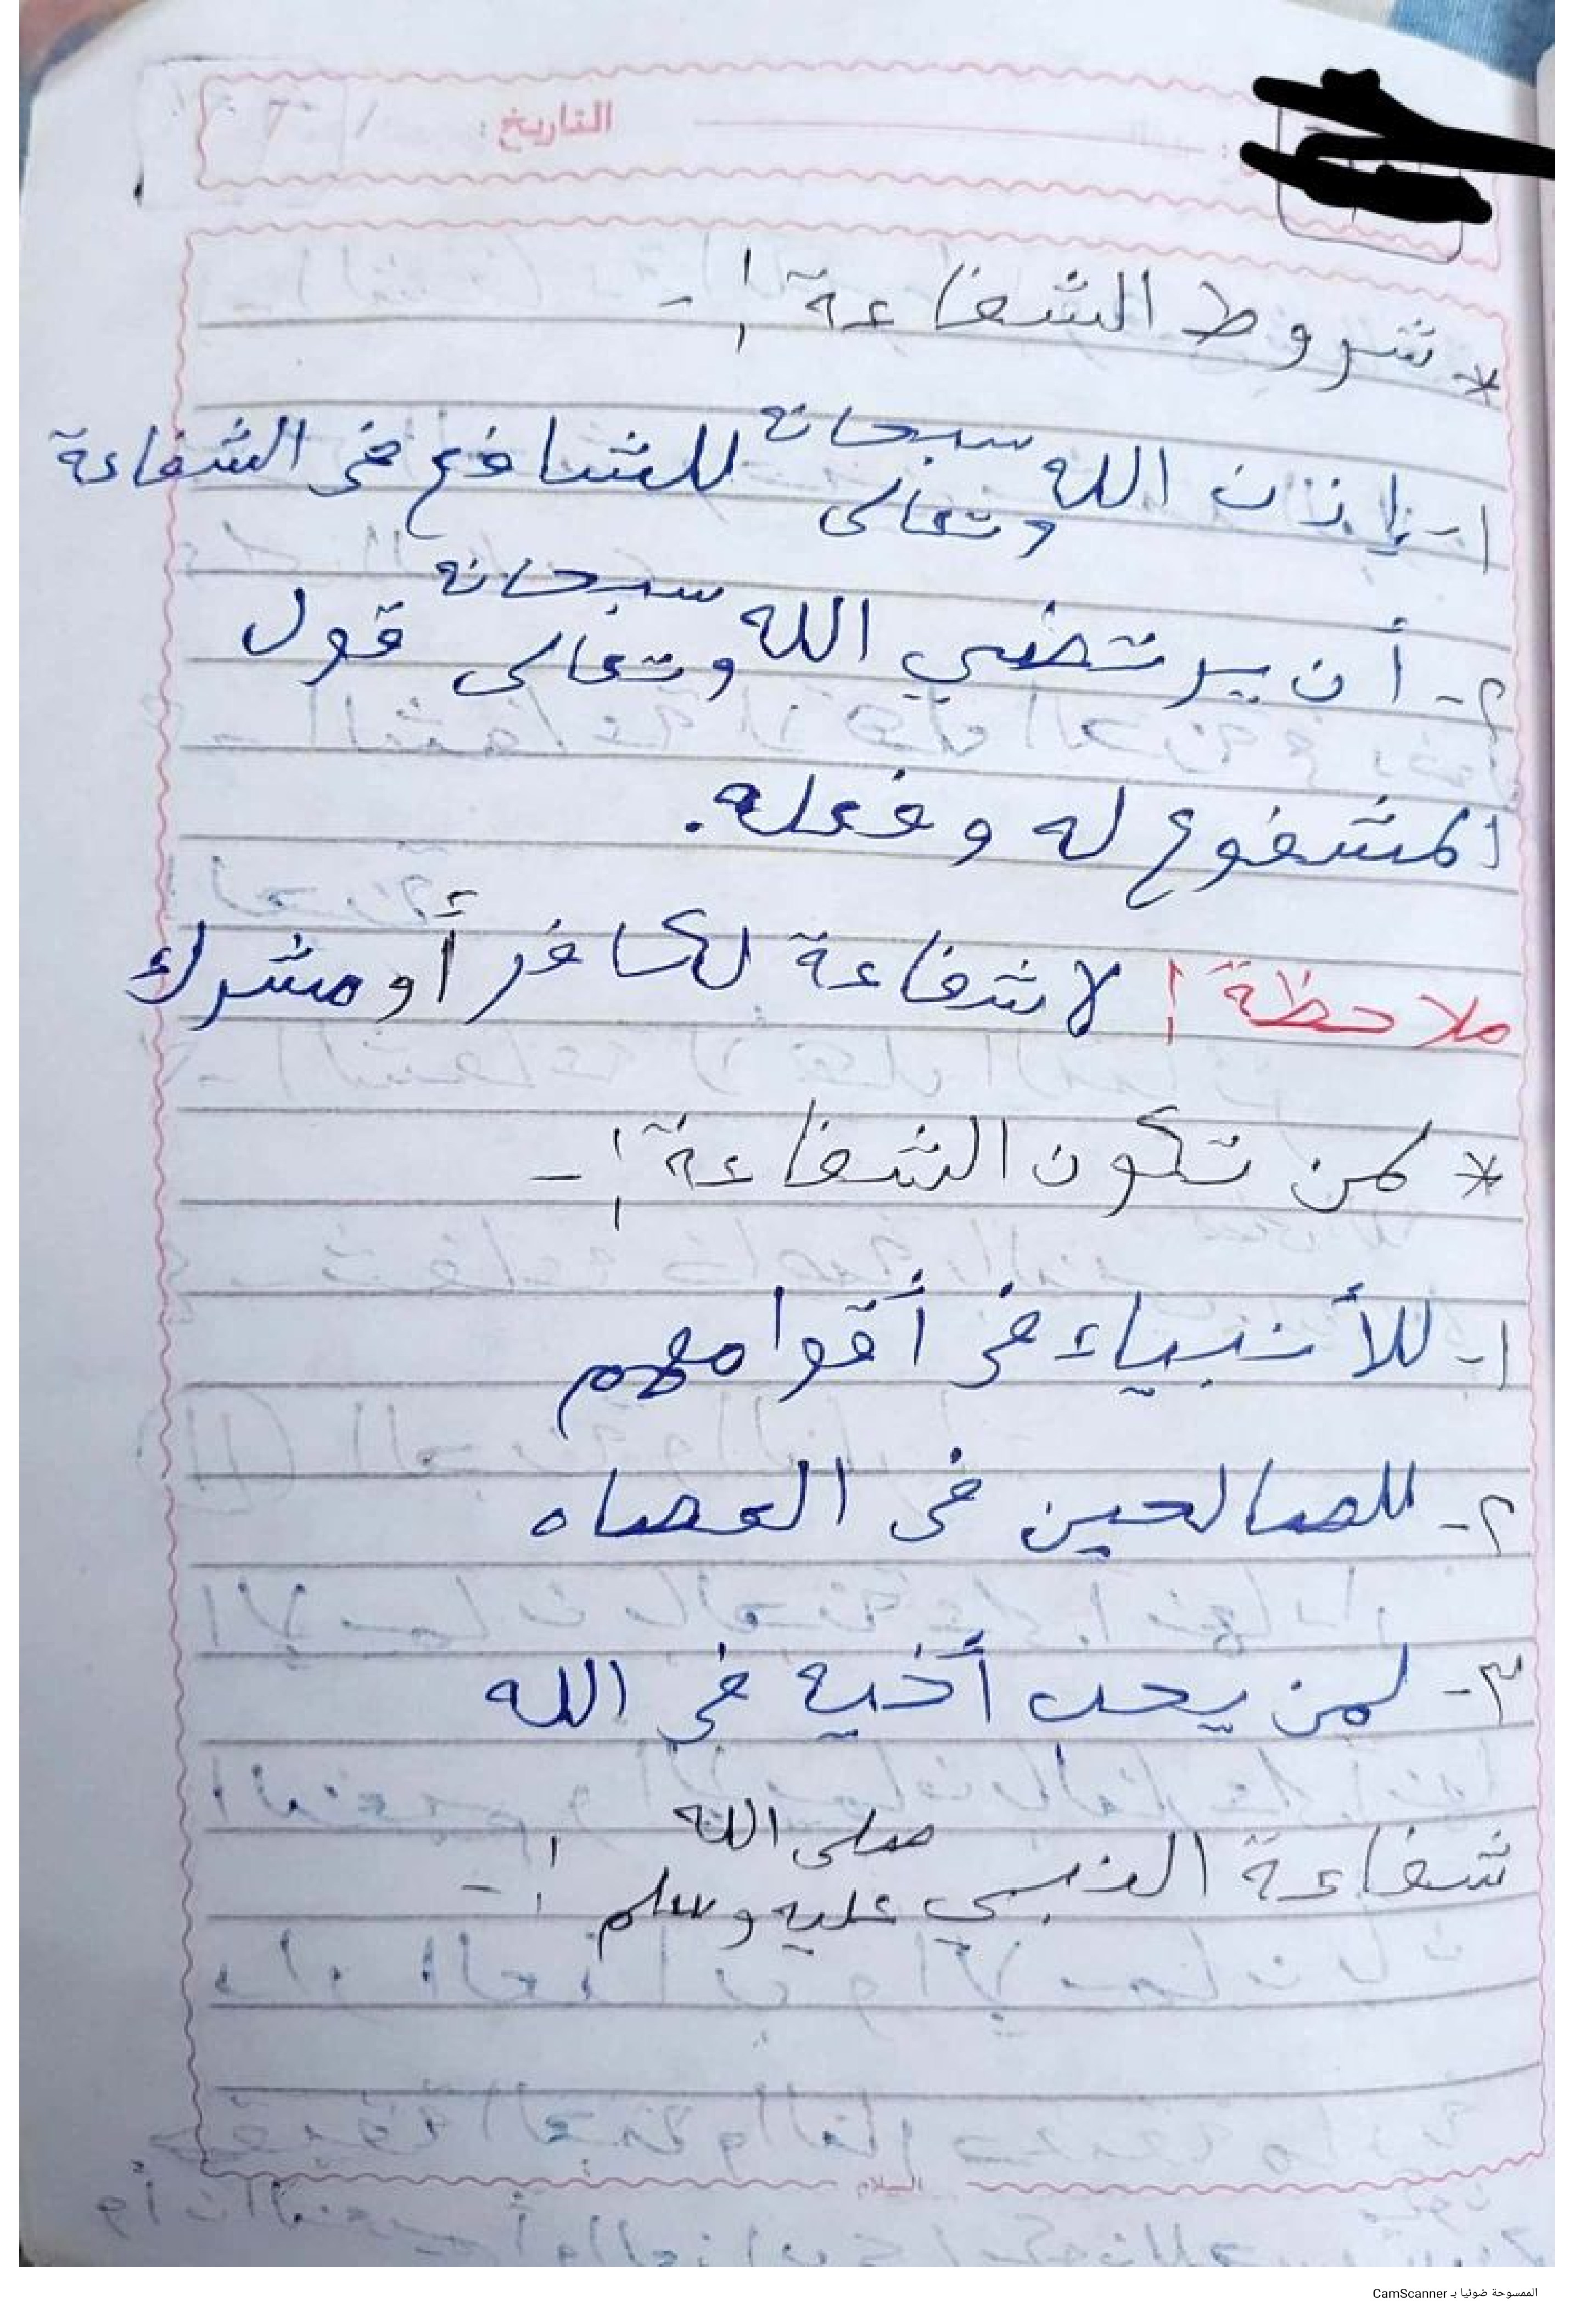 التاريخ:
* شروط الشفاعة :-
١- إذن الله سبحانه وتعالى للشافع في الشفاعة
٢- أن يرتضي الله سبحانه وتعالى قول
المشفوع له وفعله.
ملاحظة : لا شفاعة لكافر أو مشرك
* لمن تكون الشفاعة :-
١- للأنبياء في أقوامهم
٢- للصالحين في العصاه
٣- لمن يحب أخيه في الله
شفاعة النبي صلى الله عليه وسلم :-
الممسوحة ضوئيا بـ CamScanner